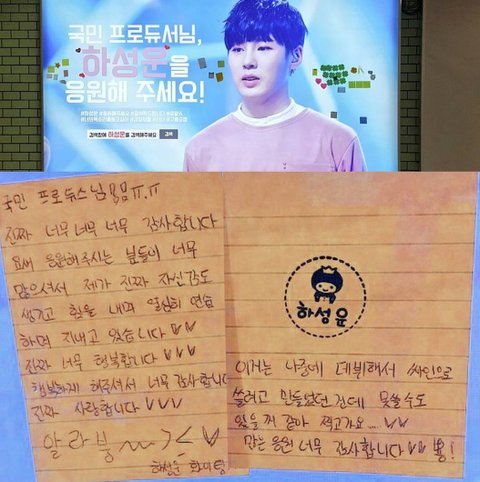 국민 프로듀서님,
하성운을
응원해 주세요!
검색창에 하성운을 검색해주세요 검색
국민 프로듀스님 ㅠ.ㅠ
진짜 너무 너무 너무 감사합니다
요새 응원해주시는 분들이 너무
많으셔서 제가 진짜 자신감도
생기고 힘을 내며 열심히 연습
하며 지내고 있습니다
진짜 너무 행복합니다
행복하게 해주셔서 너무 감사합니다
진짜 사랑합니다
알라뷩 ~~ ><
하성운 화이팅
하성운
이거는 나중에 데뷔해서 싸인으로
쓸려고 만들었던 건데 못쓸수도
있을꺼 같아 적고가요....
많은 응원 너무 감사합니다 뿅!